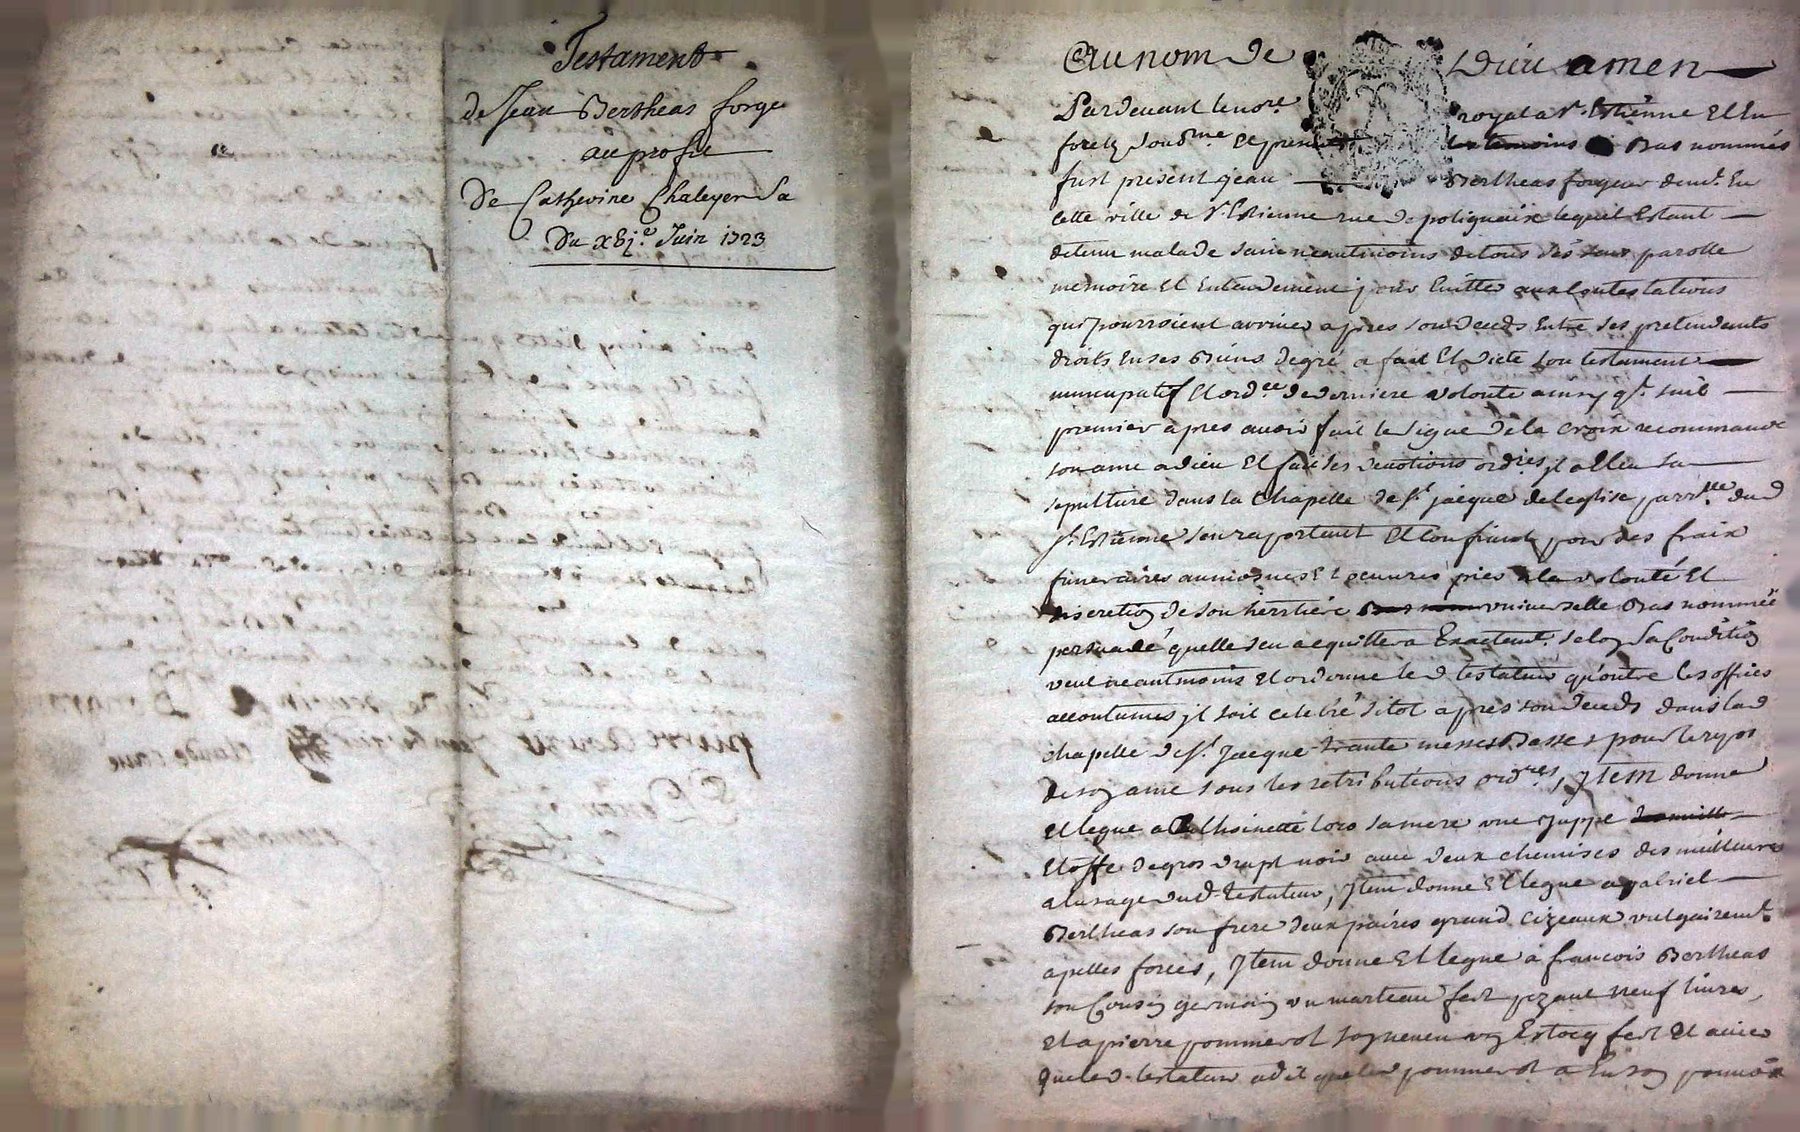 Testament
de Jean Bertheas forge
au profit
De Catherine Chaleyer Sa
Du xbj.e Juin 1723
Au nom de Dieu amen
Pardevant le nore. royal a St. Estienne El En
foretz soubne. et presents les temoins Bas nommés
fust present jean Bertheas forgeur demt. En
cette ville de St. Estienne rue de polignaix lequel Estant
detenu malade sain neantmoins de tous ses sens parolle
memoire et Entendement pour Evitter aux Contestations
qui pourroient arriver apres son deceds Entre les pretendants
droits en ses Biens de gré a fait Et dicté son testament
nuncupatif Et ordce. de derniere volonte ainsy qt. suit
premier apres avoir fait le signe de la croix recommandé
son ame a dieu Et fait ses devotions ordres. jl a Eleu sa
sepulture dans la Chapelle de st. jacque de leglise parrlle. dud
st. Estienne s'en raportant Et Confiant pour des fraix
funeraires aumosnes Et oeuvres pies a la volonté Et
discretion de son herittiere universelle Bas nommée
persuadé quelle s'en acquittera Exactemt. selon sa Condition
veut neantmoins Et ordonne led testateur qu'outre les offices
accoutumes jl soit celebré sitot apres son deceds dans lad
chapelle de st. Jacque trante messes Basses pour le repos
de son ame sous les retributions ordres, jtem donne
Et legue a Anthoinette loro sa mere une juppe
Etoffe de gros drapt noir avec deux chemises des meilleures
a lusage dud. testateur, jtem donne Et legue a gabriel
Bertheas son frere deux paires grand cizeaux vulgairemt.
apelles forces, jtem donne Et legue à francois Bertheas
son Cousin germain un marteau fert pezant neuf livres,
Et a pierre pommerol son neveu un Estocq fert Et acier
que led. testateur a dit que led pommerol a En son pouvoir